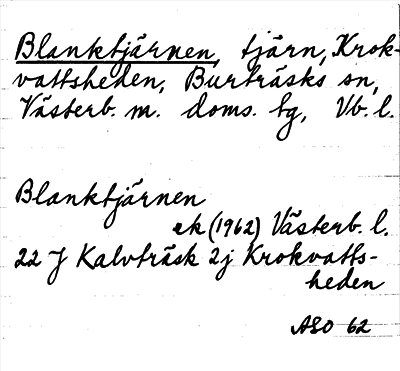 Blanktjärnen, tjärn, Krok-
vattsheden, Burträsks sn,
Västerb. m. doms. tg, Vb. l.
Blanktjärnen
ek (1962) Västerb. l.
22 J Kalvträsk 2j Krokvatts-
heden
ASO 62